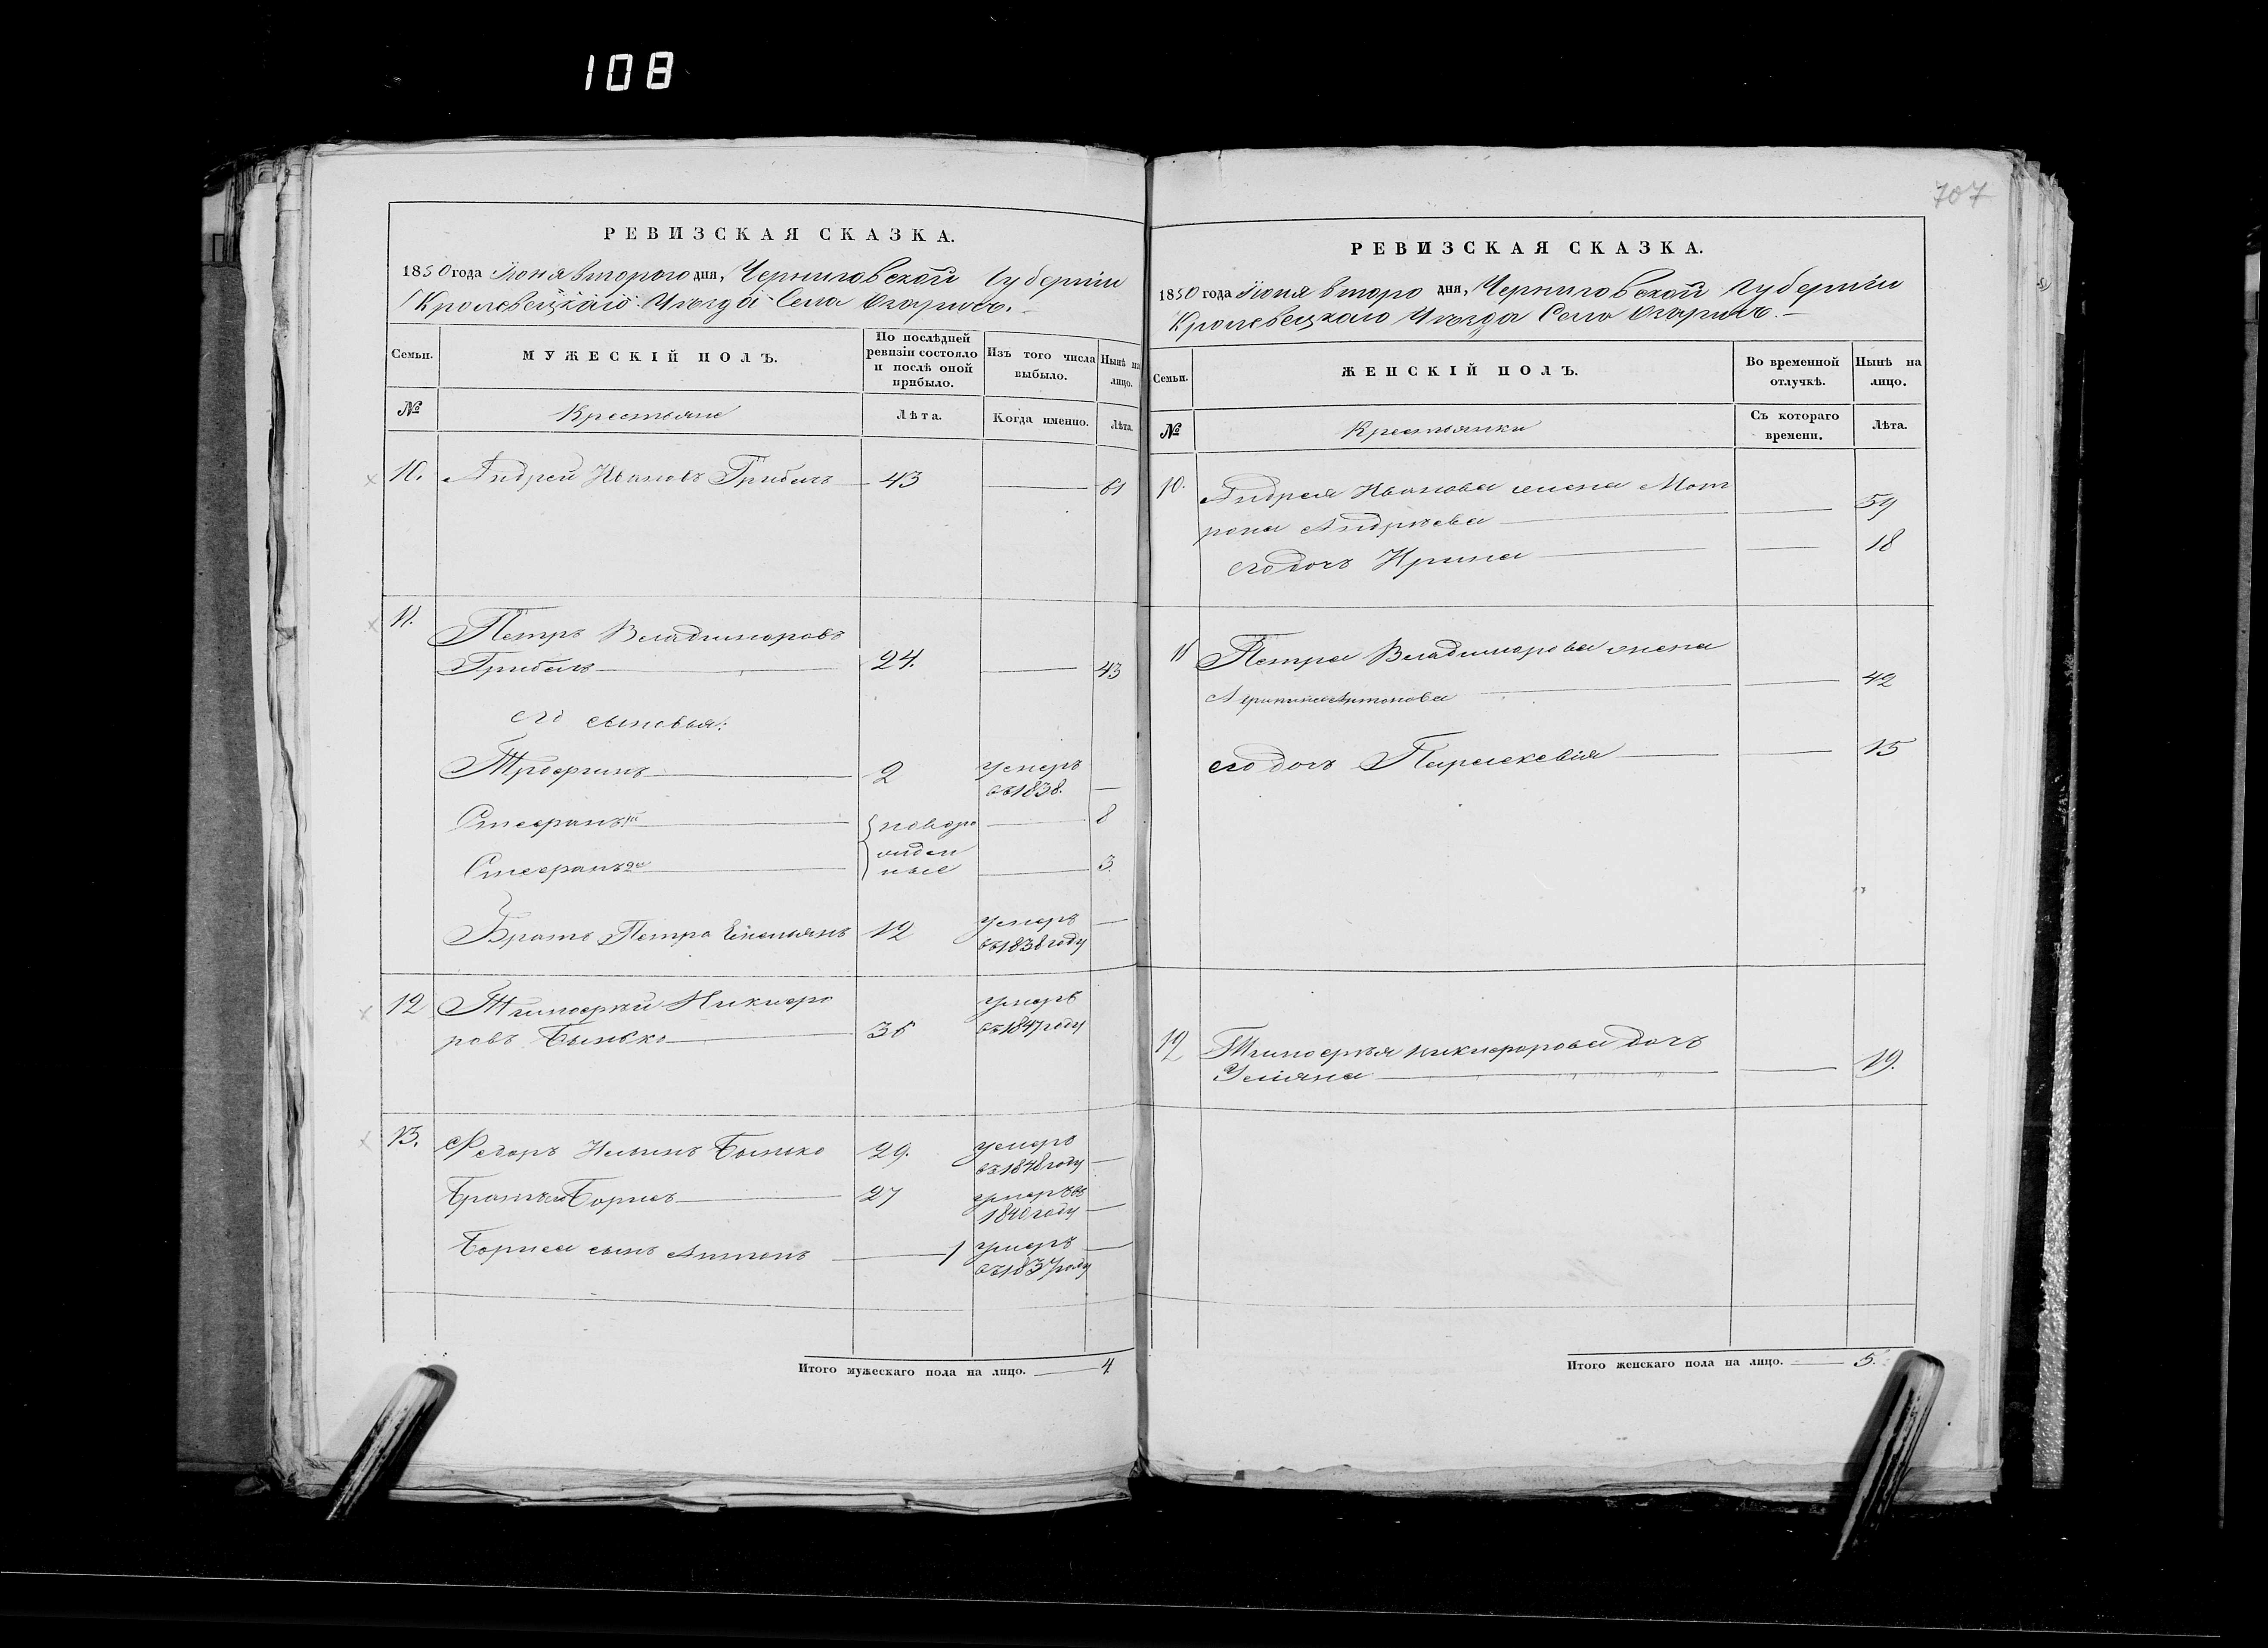 108
707
РЕВИЗСКАЯ СКАЗКА.
1850 года Іюня второго дня, Черниговской Губерніи
Кролевецкаго Уезда Села
Семьи.
МУЖЕСКІЙ ПОЛЪ.
По послѣдней ревизіи состояло и послѣ оной прибыло.
Изъ того числа выбыло.
Нынѣ на лицо.
№
Крестьяне
Лѣта.
Когда именно.
Лѣта.
10. Андрей Ивановъ Грибель 43 61
11. Петръ Владимировъ
Грибель 24. 43
его сыновья:
Трофимъ 2 умеръ
въ 1838.
Стефанъ 1й новоро 8
жден
Стефанъ 2й ные 3
Братъ Петра Емельянъ 12 умеръ
въ 1838 году
12 Тимофей Никифо
ровъ Бынько 36 умеръ
въ 1847 году
13. Федоръ Ильинъ Бынько 29. умеръ
въ 1848 году
Братъ его Борисъ 27 умеръ въ
1840 году
Бориса сынъ Антонъ 1 умеръ
въ 1837 году
Итого мужескаго пола на лицо. 4
РЕВИЗСКАЯ СКАЗКА.
1850 года Іюня второ дня, Черниговской Губерніи
Кролевецкаго Уезда Села
Семьи.
ЖЕНСКІЙ ПОЛЪ.
Во временной отлучкѣ.
Нынѣ на лицо.
№
Крестьянки
Съ котораго времени.
Лѣта.
10. Андрея Иванова жена Мот
рона Андрѣева 59
его дочь Ирина 18
11 Петра Владимирова жена
Антонова 42
его дочь Параскевія 15
12 Тимофея Никифорова дочь
Уліяна 19.
Итого женскаго пола на лицо. 5.